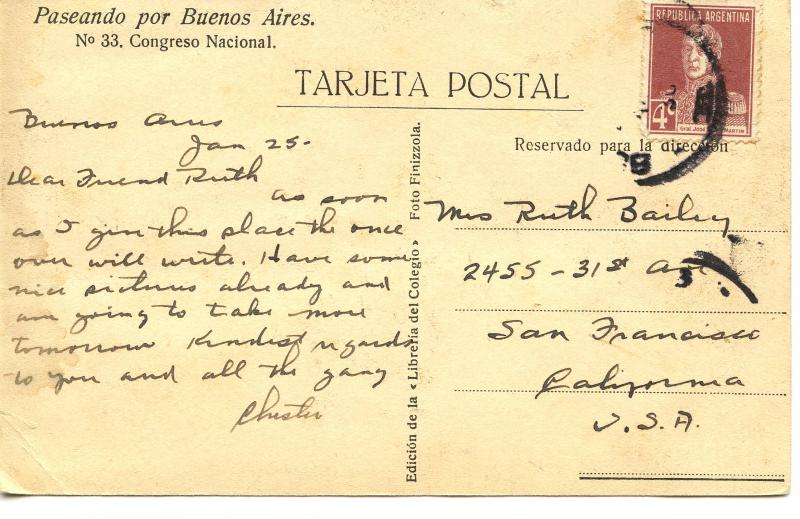 Paseando por Buenos Aires.
Nº 33. Congreso Nacional.
TARJETA POSTAL
REPUBLICA ARGENTINA
4c
Gral. José MARTIN
Reservado para la dirección
Buenos Aires
Jan 25-
Dear Friend Ruth
as soon
as I give this place the once
over will write. Have some
nice pictures already and
am going to take more
tomorrow Kindest regards
to you and all the gang
Chester
Edición de la « Librería del Colegio » Foto Finizzola.
Mrs Ruth Bailey
2455 - 31st Ave
San Francisco
California
U.S.A.